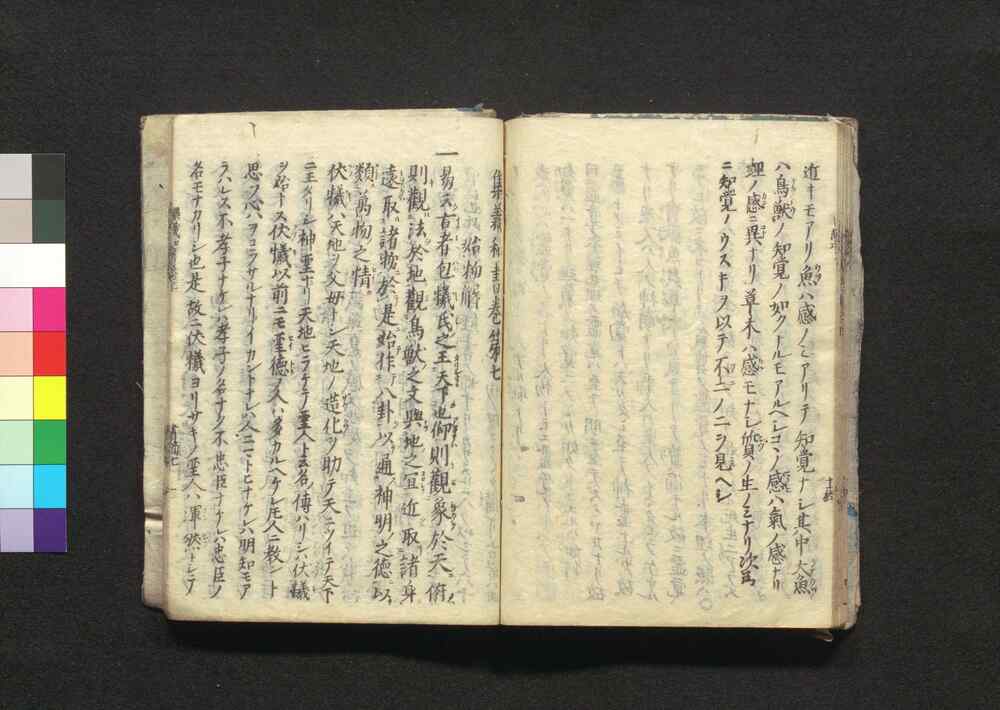 近キモアリ魚ハ感ノミアリテ知覚ナシ其中大魚
ハ鳥獣ノ知覚ノ如クナルモアルヘシコノ感ハ氣ノ感ナリ
理ノ感ニ異ナリ草木ハ感モナシ質ノ生ノミナリ次第
ニ知覚ノウスキヲ以テ不二ノ二ヲ見ヘシ
集義和書巻第七
始物解
一易云古者包犧氏之王天下也仰則觀象於天俯
則觀法於地觀鳥獣之文與地之宜近取諸身
遠取諸物於是始作八卦以通神明之德以
類萬物之情。
伏犧ハ天地ヲ父母トシ天地ノ造化ヲ助テ天ニツイテ天下
ニ王タリシ神聖ナリ天地ヒラケテ聖人ト云名ノ傳ハリシハ伏犧
ヲ始トス伏犧以前ニモ至德ノ人ハ多カルヘケレ共人ニ教ント
思フ心ハヲコラサルナリイカントナレハ人ニマトヒナケレハ明知モア
ラハレス不孝子ナケレハ孝子ノ名ナク不忠臣ナケレハ忠臣ノ
名モナカリシ也是故ニ伏犧ヨリサキノ聖人ハ渾然トシテ